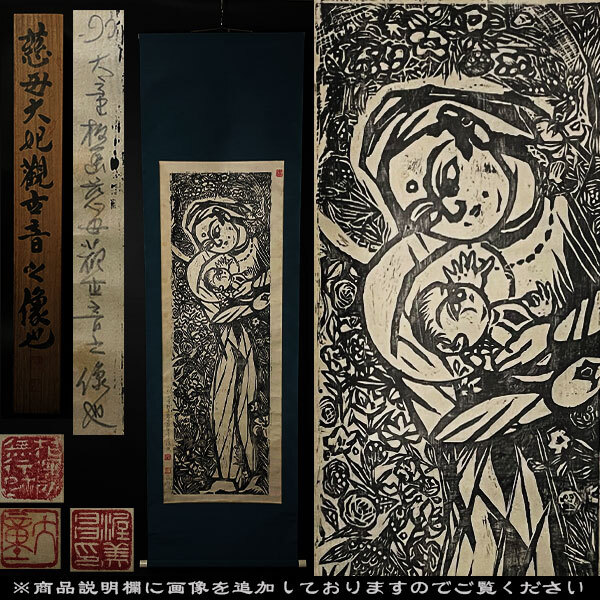 慈母大悲観世音之像也
大童板画慈母観世音之像也
大童
渥美
昌印
※商品説明欄に画像を追加しておりますのでご覧ください